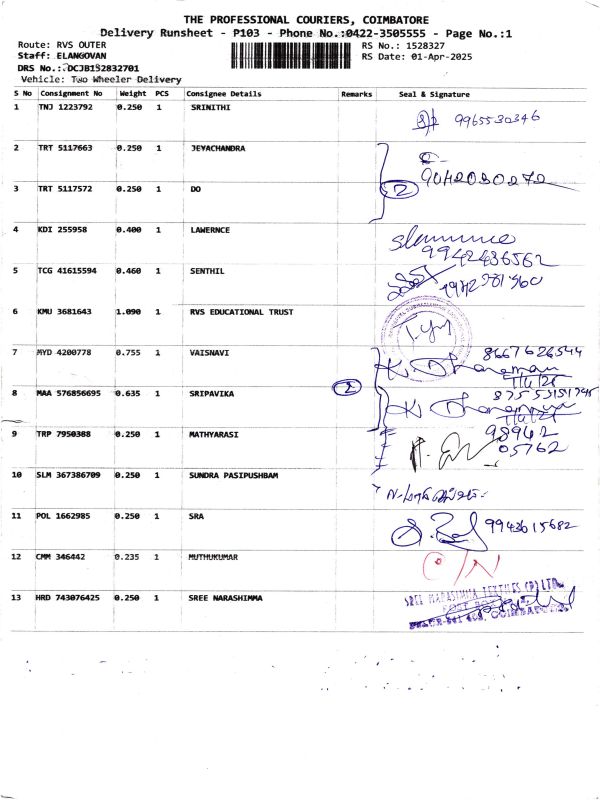 THE PROFESSIONAL COURIERS, COIMBATORE
Delivery Runsheet - P103 - Phone No.:0422-3505555 - Page No.:1
Route: RVS OUTER RS No.: 1528327
Staff: ELANGOVAN RS Date: 01-Apr-2025
DRS No.: DCJB152832701
Vehicle: Two Wheeler Delivery
S No Consignment No Weight PCS Consignee Details Remarks Seal & Signature
1 TNJ 1223792 0.250 1 SRINITHI 9965530346
2 TRT 5117663 0.250 1 JEYACHANDRA
3 TRT 5117572 0.250 1 DO 2
4 KDI 255958 0.400 1 LAWERNCE 9942436562
5 TCG 41615594 0.460 1 SENTHIL
6 KMU 3681643 1.090 1 RVS EDUCATIONAL TRUST
7 MYD 4200778 0.755 1 VAISNAVI 8667626544
8 MAA 576856695 0.635 1 SRIPAVIKA
9 TRP 7950388 0.250 1 MATHYARASI 98942
05762
10 SLM 367386709 0.250 1 SUNDRA PASIPUSHBAM
11 POL 1662985 0.250 1 SRA 9943615682
12 CMM 346442 0.235 1 MUTHUKUMAR O/N
13 HRD 743076425 0.250 1 SREE NARASHIMMA SREE NARASIMMA TEXTILES (P) LTD.